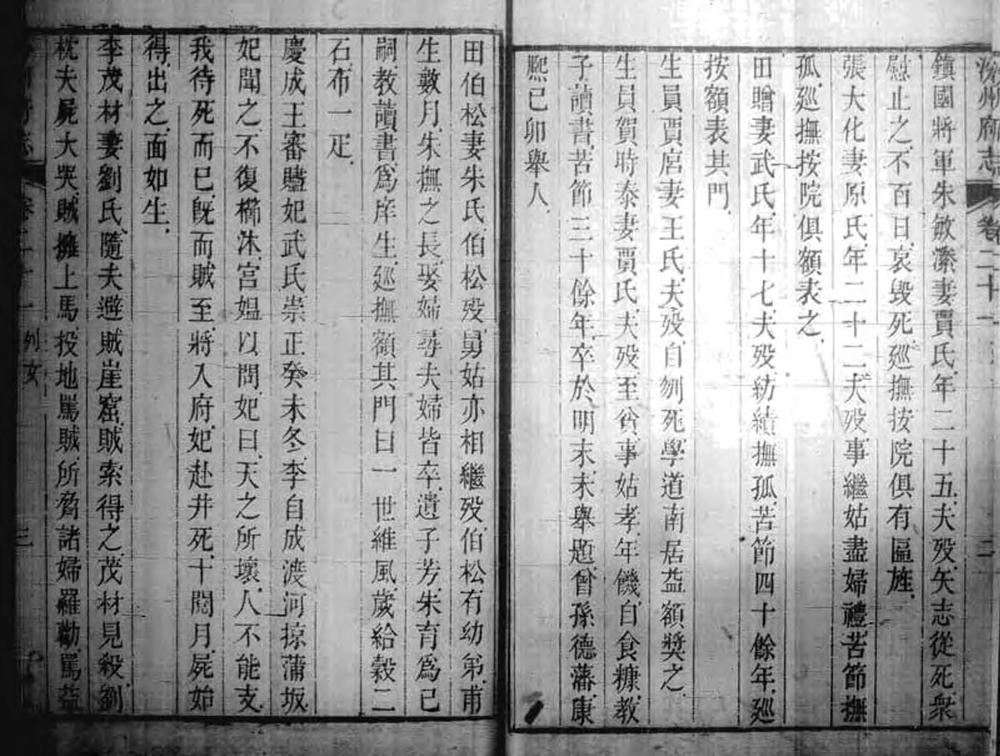 州府志 卷二十一 二
鎮國將軍朱敏濴妻賈氏年二十五夫歿矢志從死衆
慰止之不百日哀毀死廵撫按院俱有區旌
張大化妻原氏年二十二夫歿事繼姑盡婦禮苦節撫
孤廵撫按院俱額表之
田贈妻武氏年十七夫歿紡績撫孤苦節四十餘年廵
按額表其門
生員賈居妻王氏夫歿自刎死學道南居益額獎之
生員賀時泰妻賈氏夫歿至貧事姑孝年饑自食糠教
子讀書苦節三十餘年卒於明末未舉題曾孫德藩康
熙己卯舉人
田伯松妻朱氏伯松歿舅姑亦相繼歿伯松有幼弟甫
生數月朱撫之長娶婦尋夫婦皆卒遺子芳朱育爲已
嗣教讀書爲庠生廵撫額其門曰一世維風歲給穀二
石布一疋
慶成王審𤩊妃武氏崇正癸未冬李自成渡河掠蒲坂
妃聞之不復櫛沐宮媼以問妃曰天之所壞人不能支
我待死而已旣而賊至將入府妃赴井死千閏月屍始
得出之面如生
李茂材妻劉氏隨夫避賊崖窟賊索得之茂材見殺劉
枕夫屍大哭賊擁上馬投地罵賊所脅諸婦羅勸罵益
志 卷二十一 列女 三